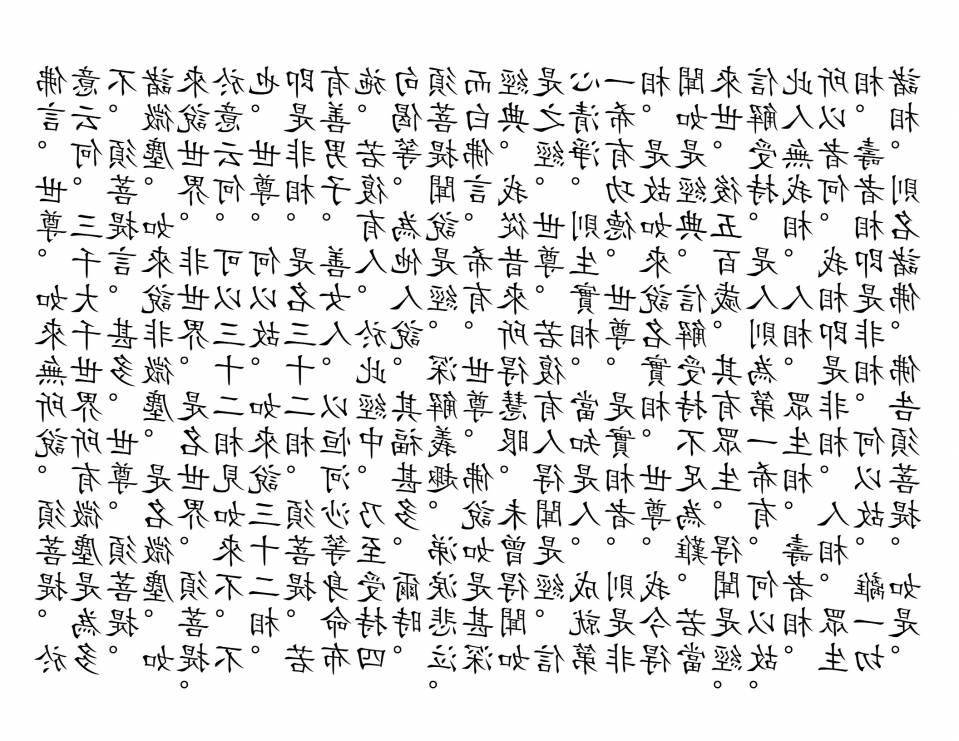 佛言。世尊。如來無所說。須菩提。於
意云何。三千大千世界所有微塵是為多
不。須菩提言。甚多。世尊。須菩提。
諸微塵。如來說非微塵。是名微塵。如
來說世界。非世界。是名世界。須菩提。
於意云何。可以三十二相見如來不。不
也。世尊。何以故。如來說三十二相。
即是非相。是名三十二相。須菩提。若
有善男子。善女人。以恒河沙等身命布
施。若復有人。於此經中。乃至受持四
句偈等。為他人說。其福甚多。爾時。
須菩提聞說是經。深解義趣。涕淚悲泣。
而白佛言。希有。世尊。佛說如是甚深
經典。我從昔來。所得慧眼。未曾得聞如
是之經。世尊。若復有人得聞是經。信
心清淨。則生實相。當知是人。成就第
一希有功德。世尊。是實相者。則是非
相。是故如來說名實相。世尊。我今得
聞如是經典。信解受持不足為難。若當
來世。後五百歲。其有眾生。得聞是經。
信解受持。是人則為第一希有。何以故。
此人無我相。人相。眾生相。壽者相。
所以者何。我相即是非相。人相。眾生
相。壽者相即是非相。何以故。離一切
諸相。則名諸佛。佛告須菩提。如是。